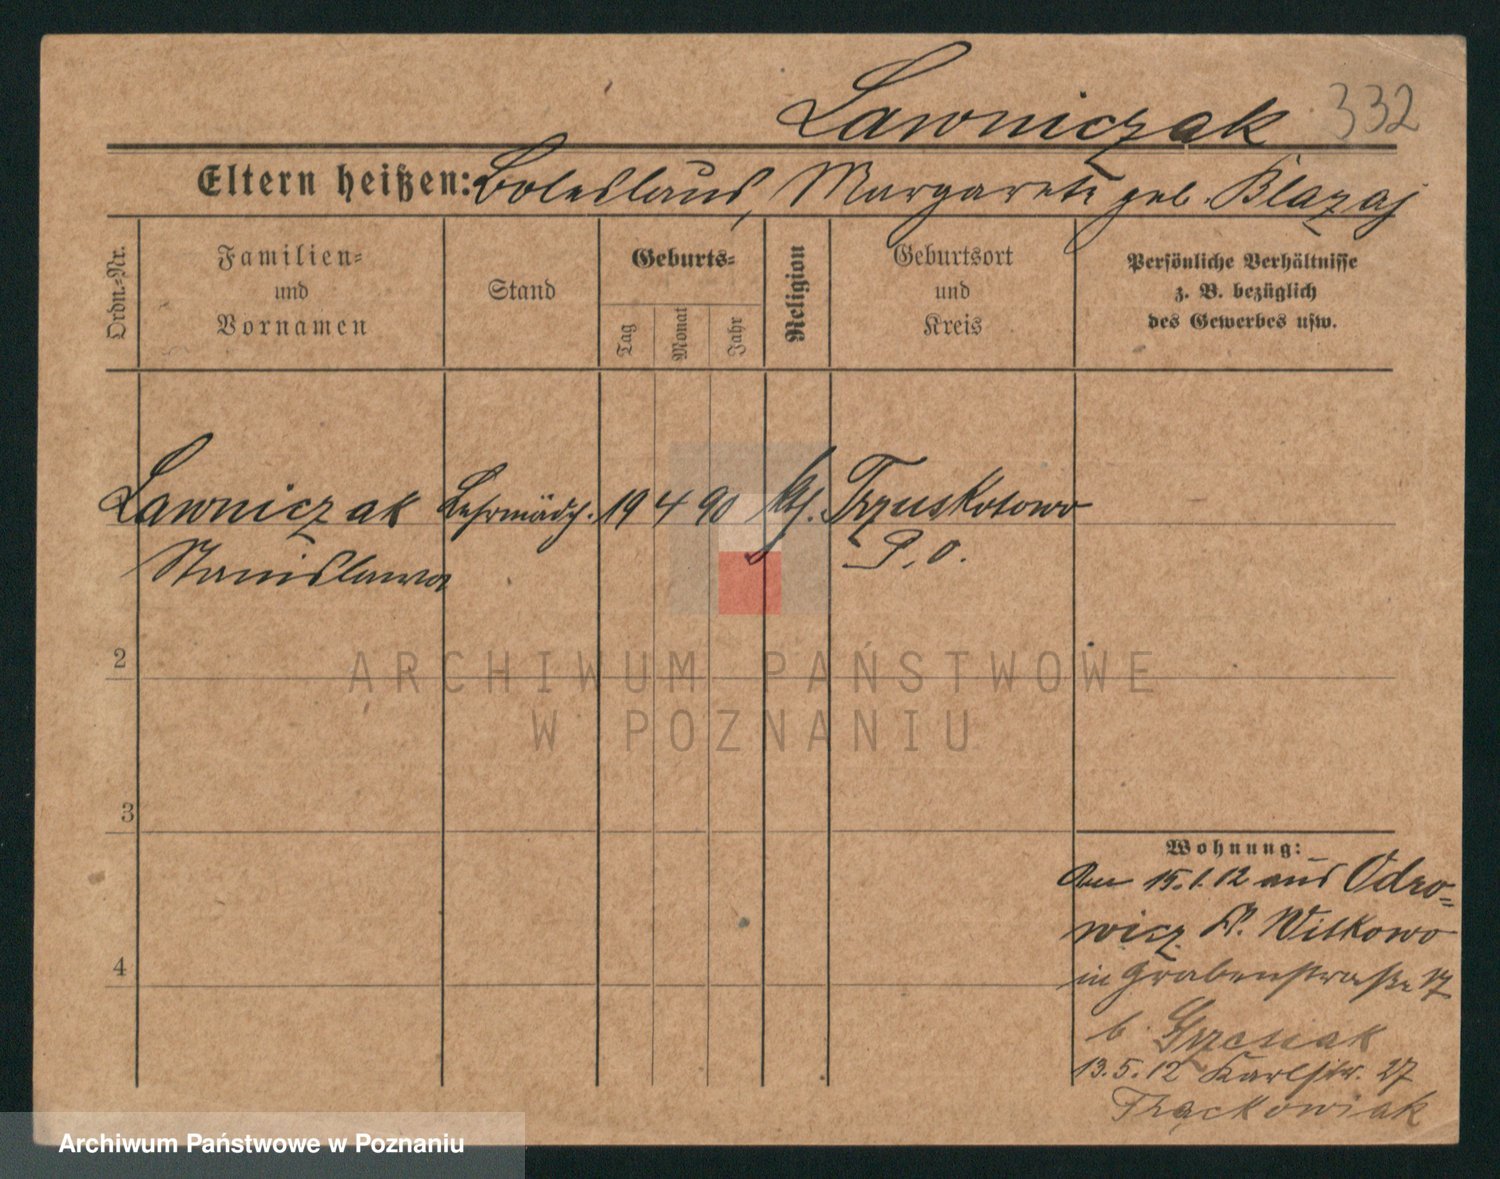 Lawniczak 332
Eltern heißen: Boleslaus, Margarete geb. Blazaj
Ordn.-Nr.
Familien-
und
Vornamen
Stand
Geburts-
Tag
Monat
Jahr
Religion
Geburtsort
und
Kreis
Persönliche Verhältnisse
z. B. bezüglich
des Gewerbes usw.
Lawniczak Lehrmädch. 19 4 90 kth. Trzuskotowo
Stanislawa P. O.
2
ARCHIWUM PAŃSTWOWE
W POZNANIU
3
Wohnung:
15.1.12 aus Odro-
wicz Kr. Witkowo
4
in Grabenstraße 17
b. Grzesiak
13.5.12 Karlstr. 27
Frąckowiak
Archiwum Państwowe w Poznaniu